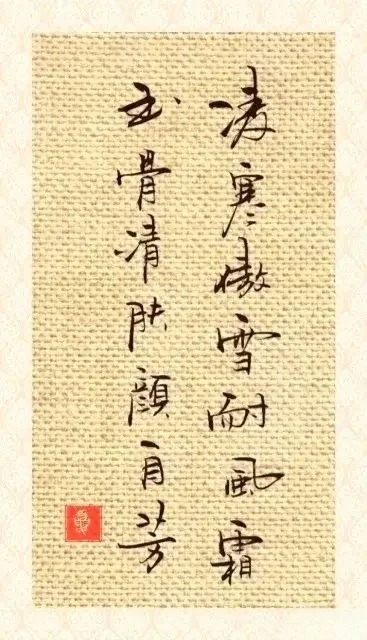 凌寒傲雪耐風霜
玉骨清肤顔自芳